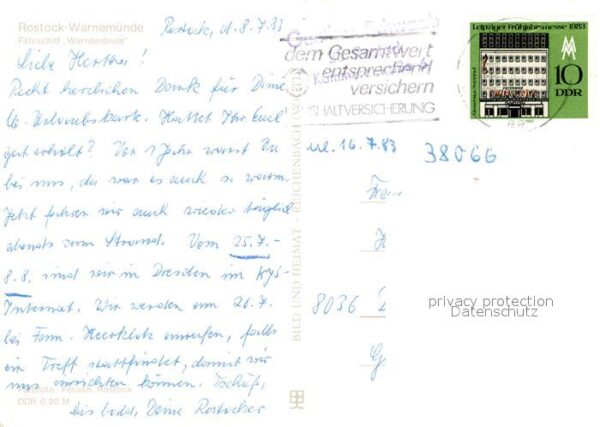 Rostock-Warnemünde
Fährschiff „Warnemünde"
Rostock, d. 8.7.83
Liebe
Recht herzlichen Dank für Deine
lb. Urlaubskarte. Hattet Ihr Euch
gut erholt? Vor 1 Jahr warst Du
bei uns, da war es auch so warm.
Jetzt fahren wir auch wieder
abends zum Strand. Vom 25.7.-
8.8. sind wir in Dresden im
Internat. Wir werden am 26.7.
bei Fam. anrufen, falls
ein Treff stattfindet, damit wir
uns erreichen können. Tschüß,
bis bald, Deine Rostocker
Rostock
DDR 0,20 M
BILD UND HEIMAT REICHENBACH
dem Gesamtwert
entsprechend
versichern
HAUSHALTVERSICHERUNG
Leipziger Frühjahrsmesse 1983
10
DDR
16.7.83
38066
Frau
8036
privacy protection
Datenschutz